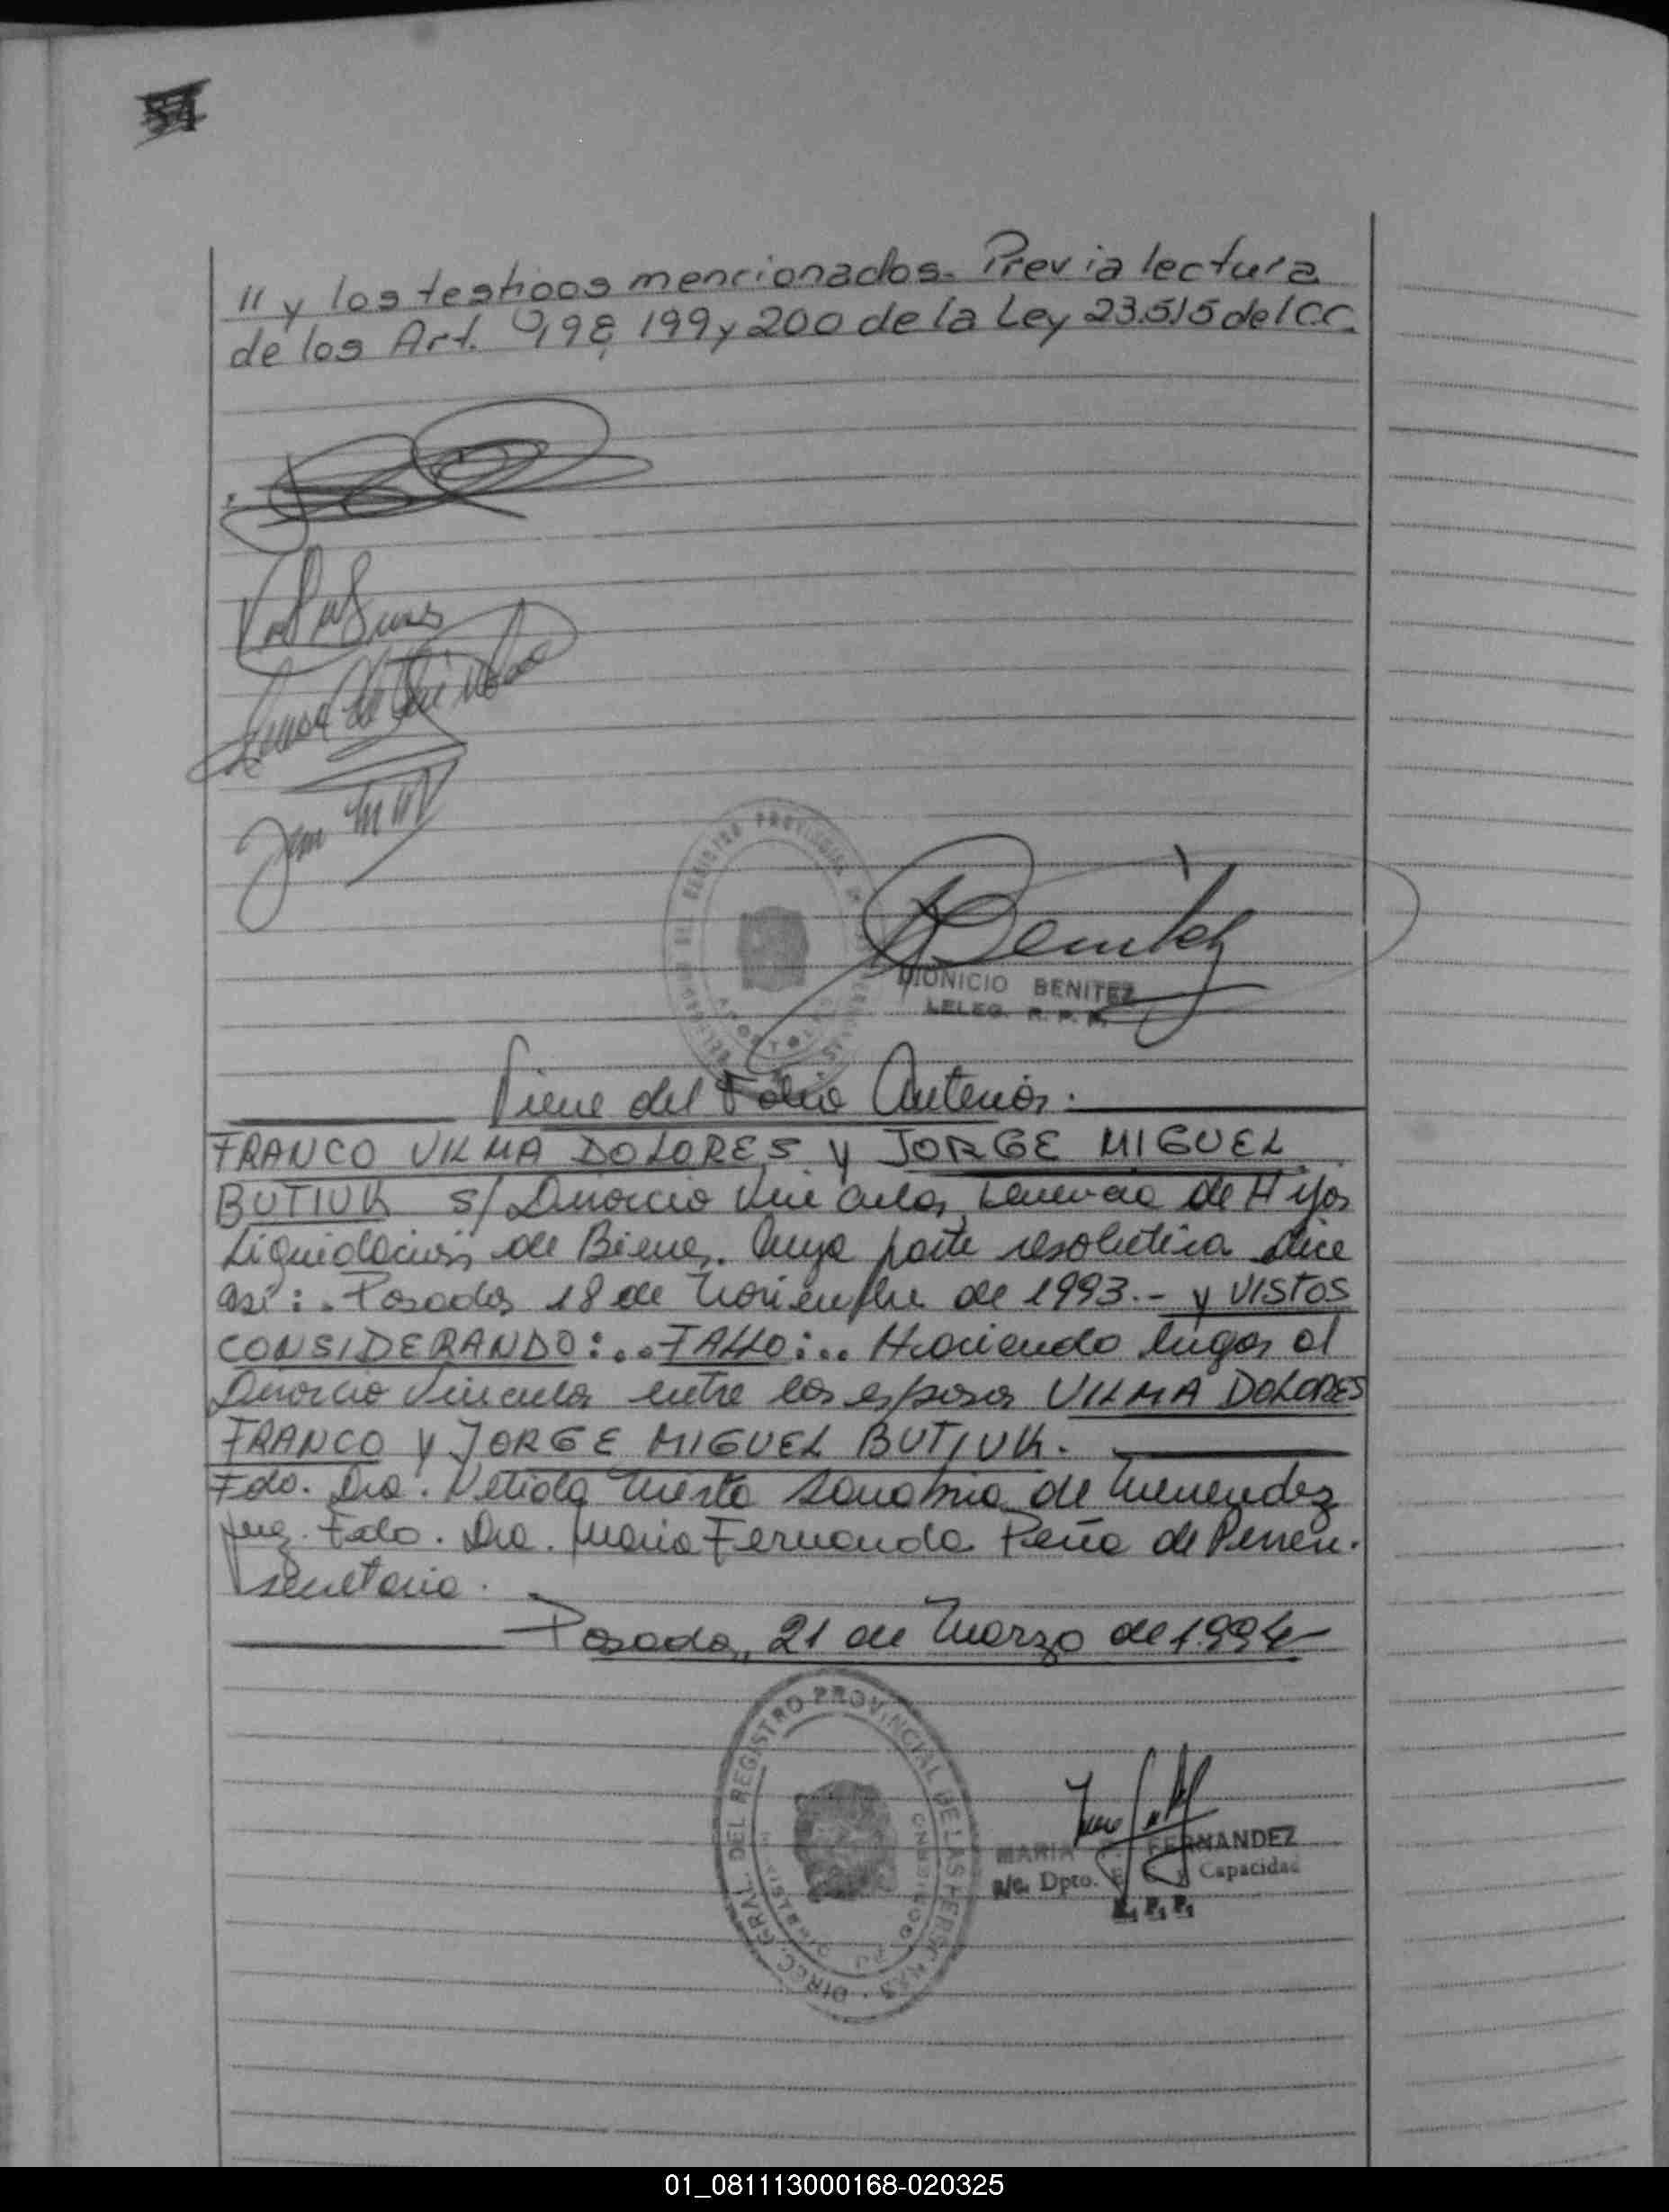 11 y los testigos mencionados. Previa lectura
de los Art. 198, 199 y 200 de la Ley 23.515 del C.C.
Benitez
DIONICIO BENITEZ
R. P. P.
Viene del Folio Anterior.
FRANCO VILMA DOLORES y JORGE MIGUEL
BUTIUK s/ Divorcio Vincular, tenencia de Hijos
Liquidación de Bienes. Cuya parte resolutiva dice
así: . Posadas 18 de Noviembre de 1993.- y VISTOS
CONSIDERANDO: ... FALLO: ... Haciendo lugar al
Divorcio Vincular entre los esposos VILMA DOLORES
FRANCO y JORGE MIGUEL BUTIUK.
Fdo. Dra. Mirta de Menendez
Juez. Fdo. Dra. Maria Fernanda Peña de
Secretaria.
Posadas, 21 de Marzo de 1994
DIREC. GRAL. DEL REGISTRO PROVINCIAL DE LAS PERSONAS
MARIA FERNANDEZ
a/c. Dpto. E. C. y Capacidad
R. P. P.
01_081113000168-020325